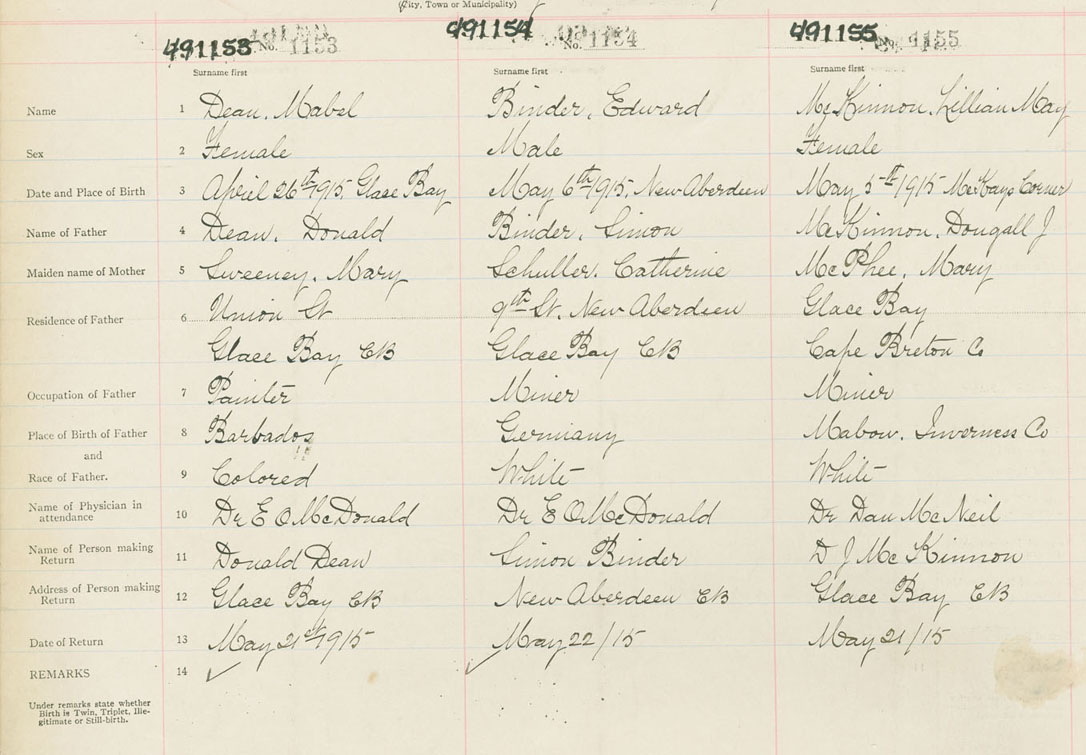 (City, Town or Municipality)
491153 No. 1153 491154 No. 1154 491155 No. 1155
Surname first Surname first Surname first
Name 1 Dean, Mabel Binder, Edward McKinnon, Lillian May
Sex 2 Female Male Female
Date and Place of Birth 3 April 26th 1915, Glace Bay May 6th 1915, New Aberdeen May 5th 1915 McKays Corner
Name of Father 4 Dean, Donald Binder, Simon McKinnon, Dougall J
Maiden name of Mother 5 Sweeney, Mary Schuller, Catherine McPhee, Mary
Residence of Father 6 Union St 9th St. New Aberdeen Glace Bay
Glace Bay CB Glace Bay CB Cape Breton Co
Occupation of Father 7 Painter Miner Miner
Place of Birth of Father 8 Barbados Germany Mabow, Inverness Co
and
Race of Father. 9 Colored White White
Name of Physician in attendance 10 Dr E O McDonald Dr E O McDonald Dr Dan McNeil
Name of Person making Return 11 Donald Dean Simon Binder D J McKinnon
Address of Person making Return 12 Glace Bay CB New Aberdeen CB Glace Bay CB
Date of Return 13 May 21st 1915 May 22/15 May 21/15
REMARKS 14
Under remarks state whether
Birth is Twin, Triplet, Ille-
gitimate or Still-birth.